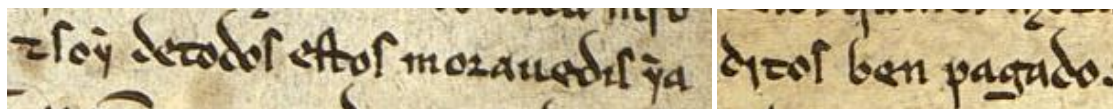 ⁊ soẏ de todos estos morauedis ẏa
ditos ben pagado.